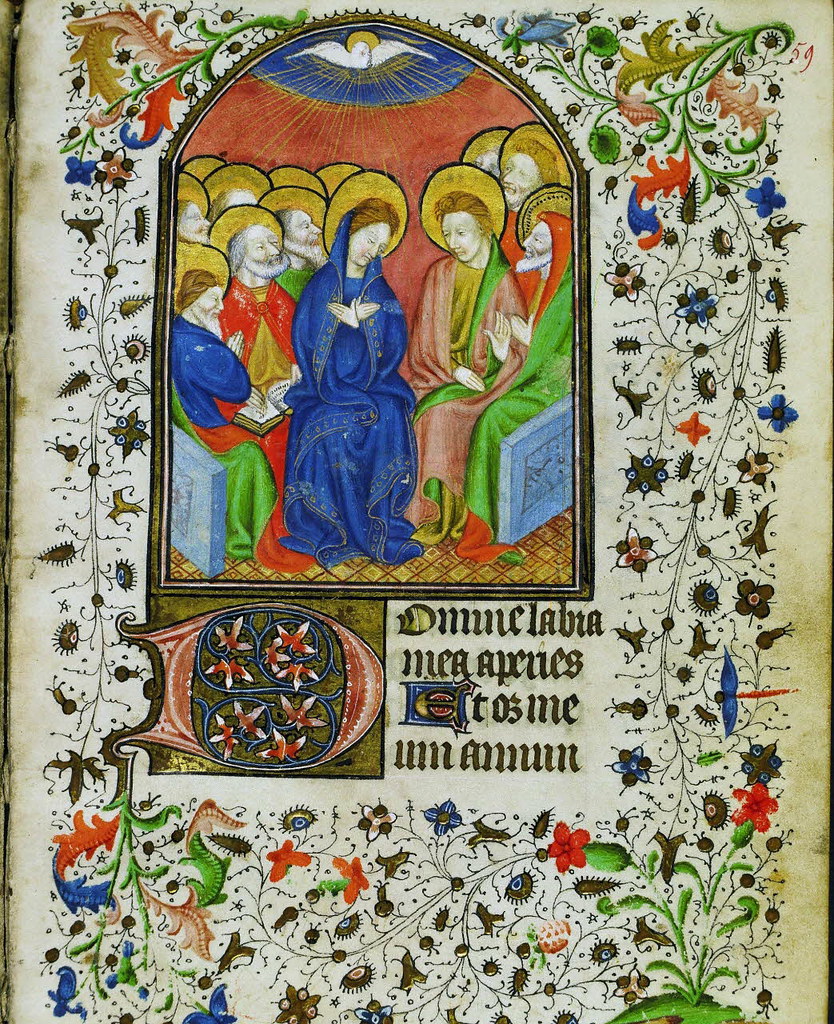 59
DOmine labia
mea aperies
Et os me
um annun